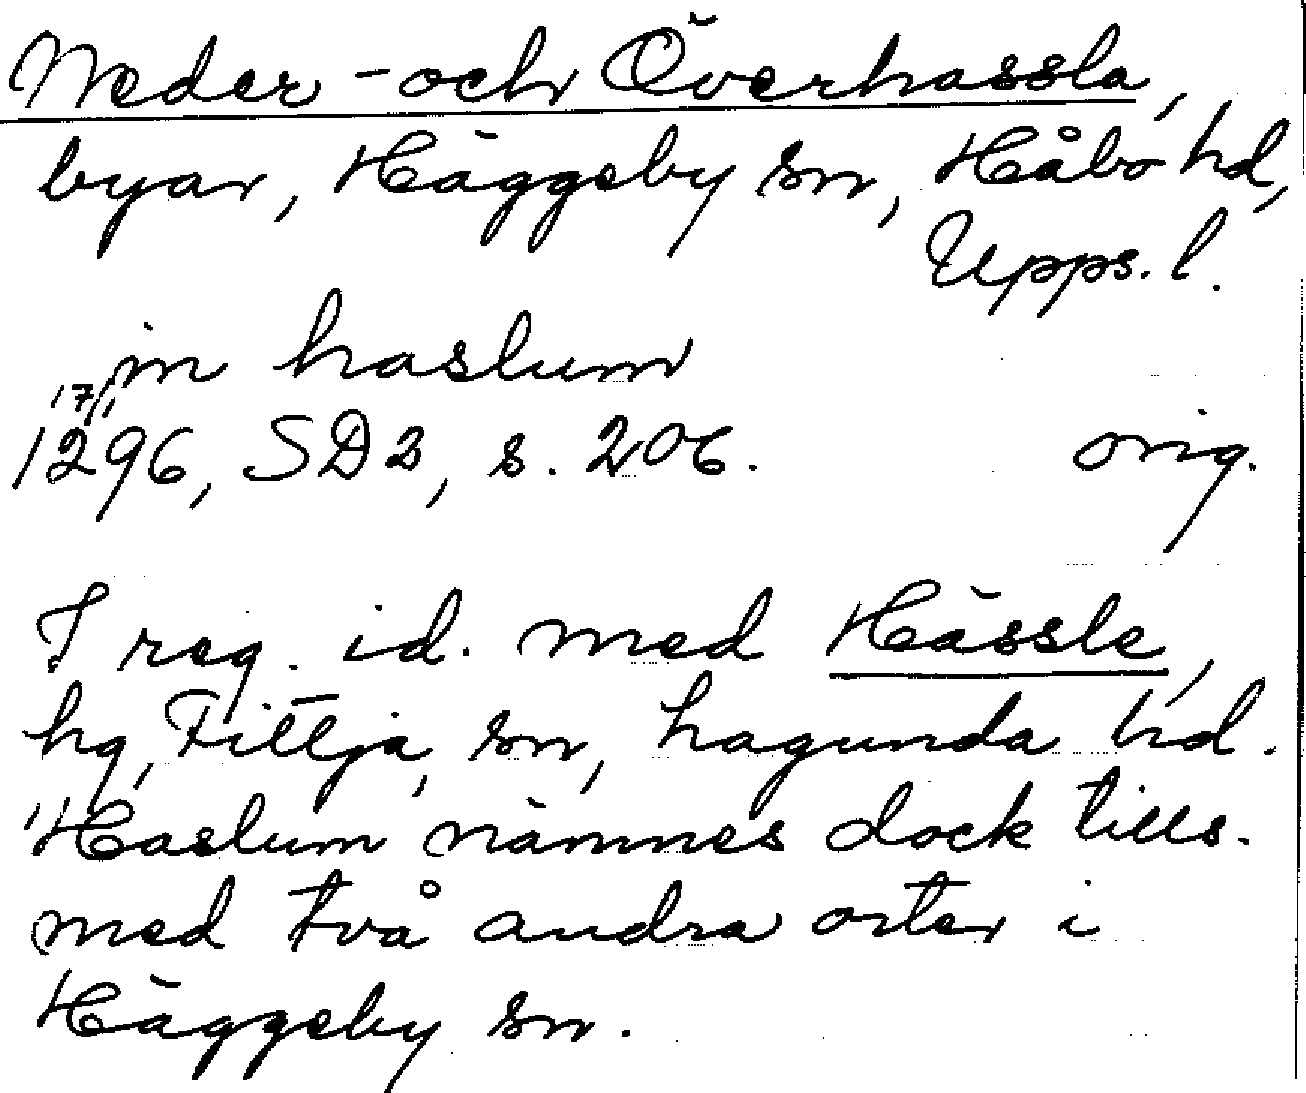 Neder- och Överhassla,
byar, Häggeby sn, Håbo hd,
Upps. l.
in haslum
17/1
1296, SD2, s. 206. orig.
I reg. id. med Hässle,
hg, Fittja, sn, hagunda hd.
Haslum nämnes dock tills.
med två andra orter i
Häggeby sn.